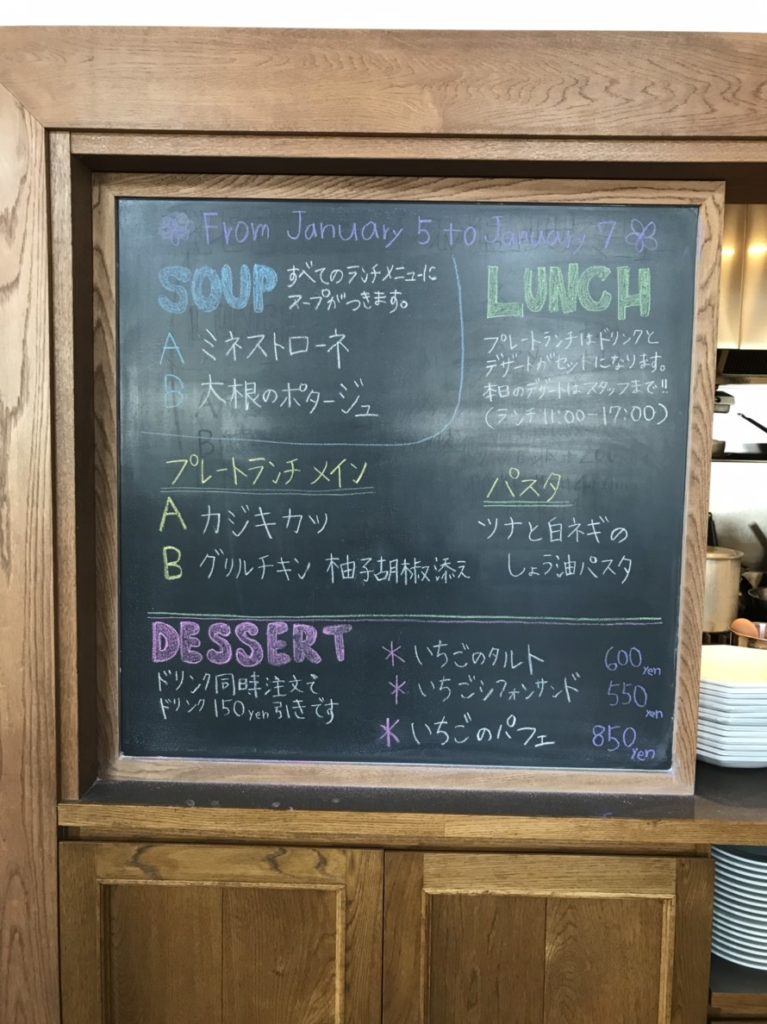 From January 5 to January 7
SOUP すべてのランチメニューに
スープがつきます。
A ミネストローネ
B 大根のポタージュ
LUNCH
プレートランチはドリンクと
デザートがセットになります。
本日のデザートはスタッフまで!!
(ランチ 11:00-17:00)
プレートランチ メイン
A カジキカツ
B グリルチキン 柚子胡椒添え
パスタ
ツナと白ネギの
しょう油パスタ
DESSERT
ドリンク同時注文で
ドリンク 150yen引きです
* いちごのタルト 600yen
* いちごシフォンサンド 550yen
* いちごのパフェ 850yen